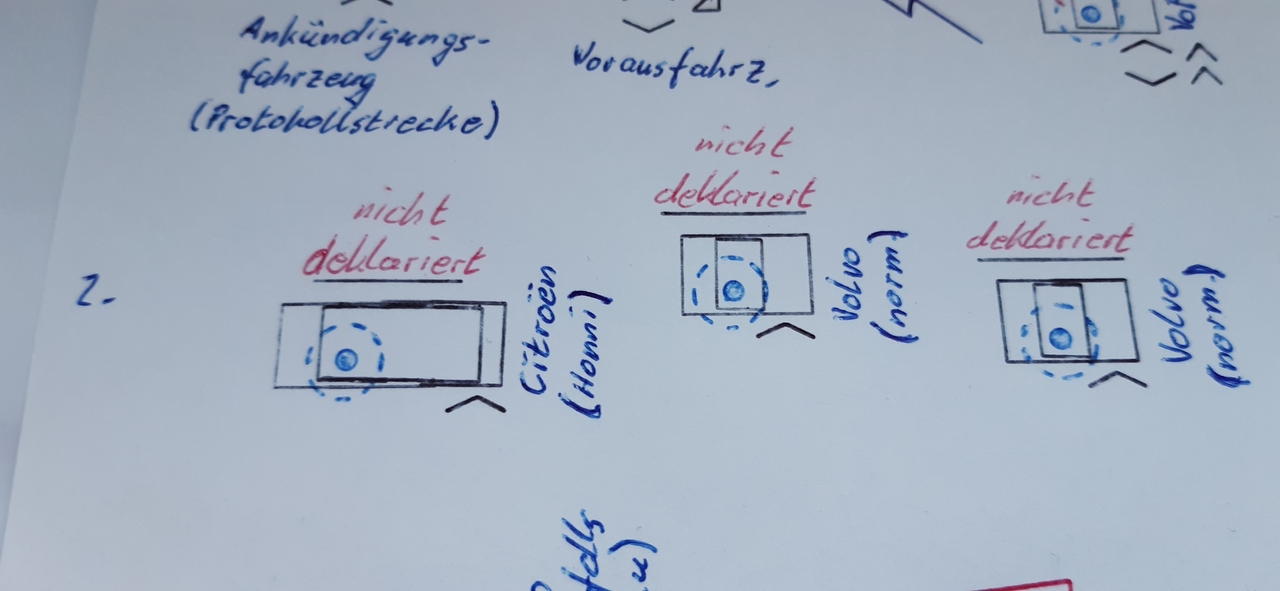 Ankündigungs-
fahrzeug
(Protokollstrecke)
Vorausfahrz.
2.
nicht
deklariert
Citroën
(Honni)
nicht
deklariert
Volvo
(norm.)
nicht
deklariert
Volvo
(norm.)